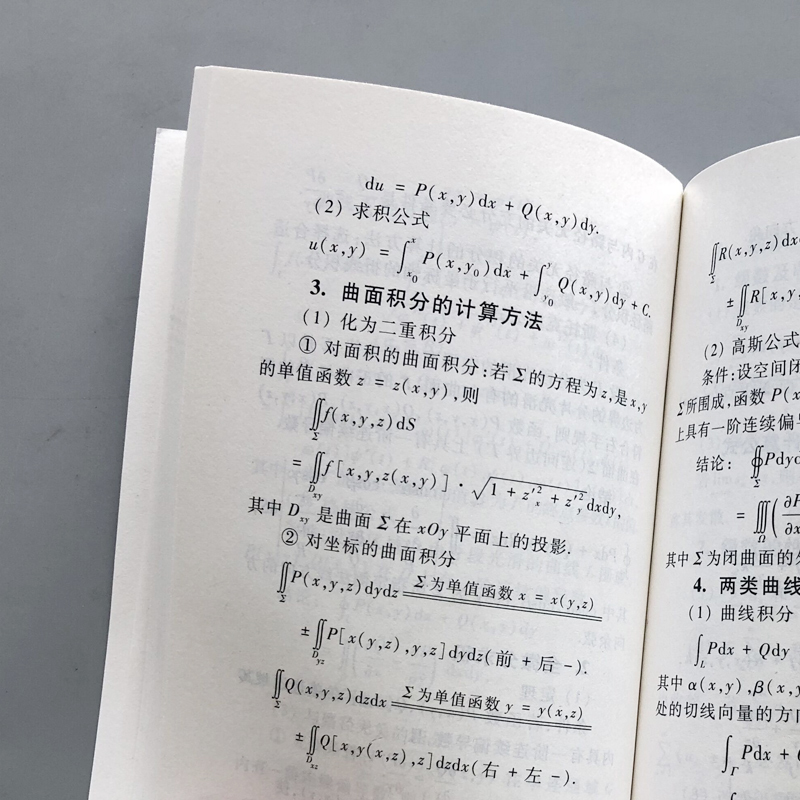 du = P(x,y)dx + Q(x,y)dy.
(2) 求积公式
u(x,y) = ∫_{x₀}^{x} P(x,y₀)dx + ∫_{y₀}^{y} Q(x,y)dy + C.
3. 曲面积分的计算方法
(1) 化为二重积分
① 对面积的曲面积分:若 Σ 的方程为 z,是 x,y
的单值函数 z = z(x,y),则
∬_Σ f(x,y,z)dS
= ∬_{D_{xy}} f[x,y,z(x,y)] · √(1 + z′²_x + z′²_y) dxdy,
其中 D_{xy} 是曲面 Σ 在 xOy 平面上的投影.
② 对坐标的曲面积分
∬_Σ P(x,y,z)dydz Σ为单值函数 x = x(y,z)
± ∬_{D_{yz}} P[x(y,z),y,z]dydz(前 + 后 −).
∬_Σ Q(x,y,z)dzdx Σ为单值函数 y = y(x,z)
± ∬_{D_{xz}} Q[x,y(x,z),z]dzdx(右 + 左 −).
∬_Σ R(x,y,z)dxd
± ∬_{D_{xy}} R[x,y,
(2) 高斯公式
条件:设空间闭
Σ所围成,函数 P(x
上具有一阶连续偏导
结论: ∯_Σ Pdyd
= ∭_Ω (∂P/∂x
其中 Σ 为闭曲面的外
4. 两类曲线
(1) 曲线积分
∫_L Pdx + Qdy
其中 α(x,y),β(x,y
处的切线向量的方向
∫_Γ Pdx +